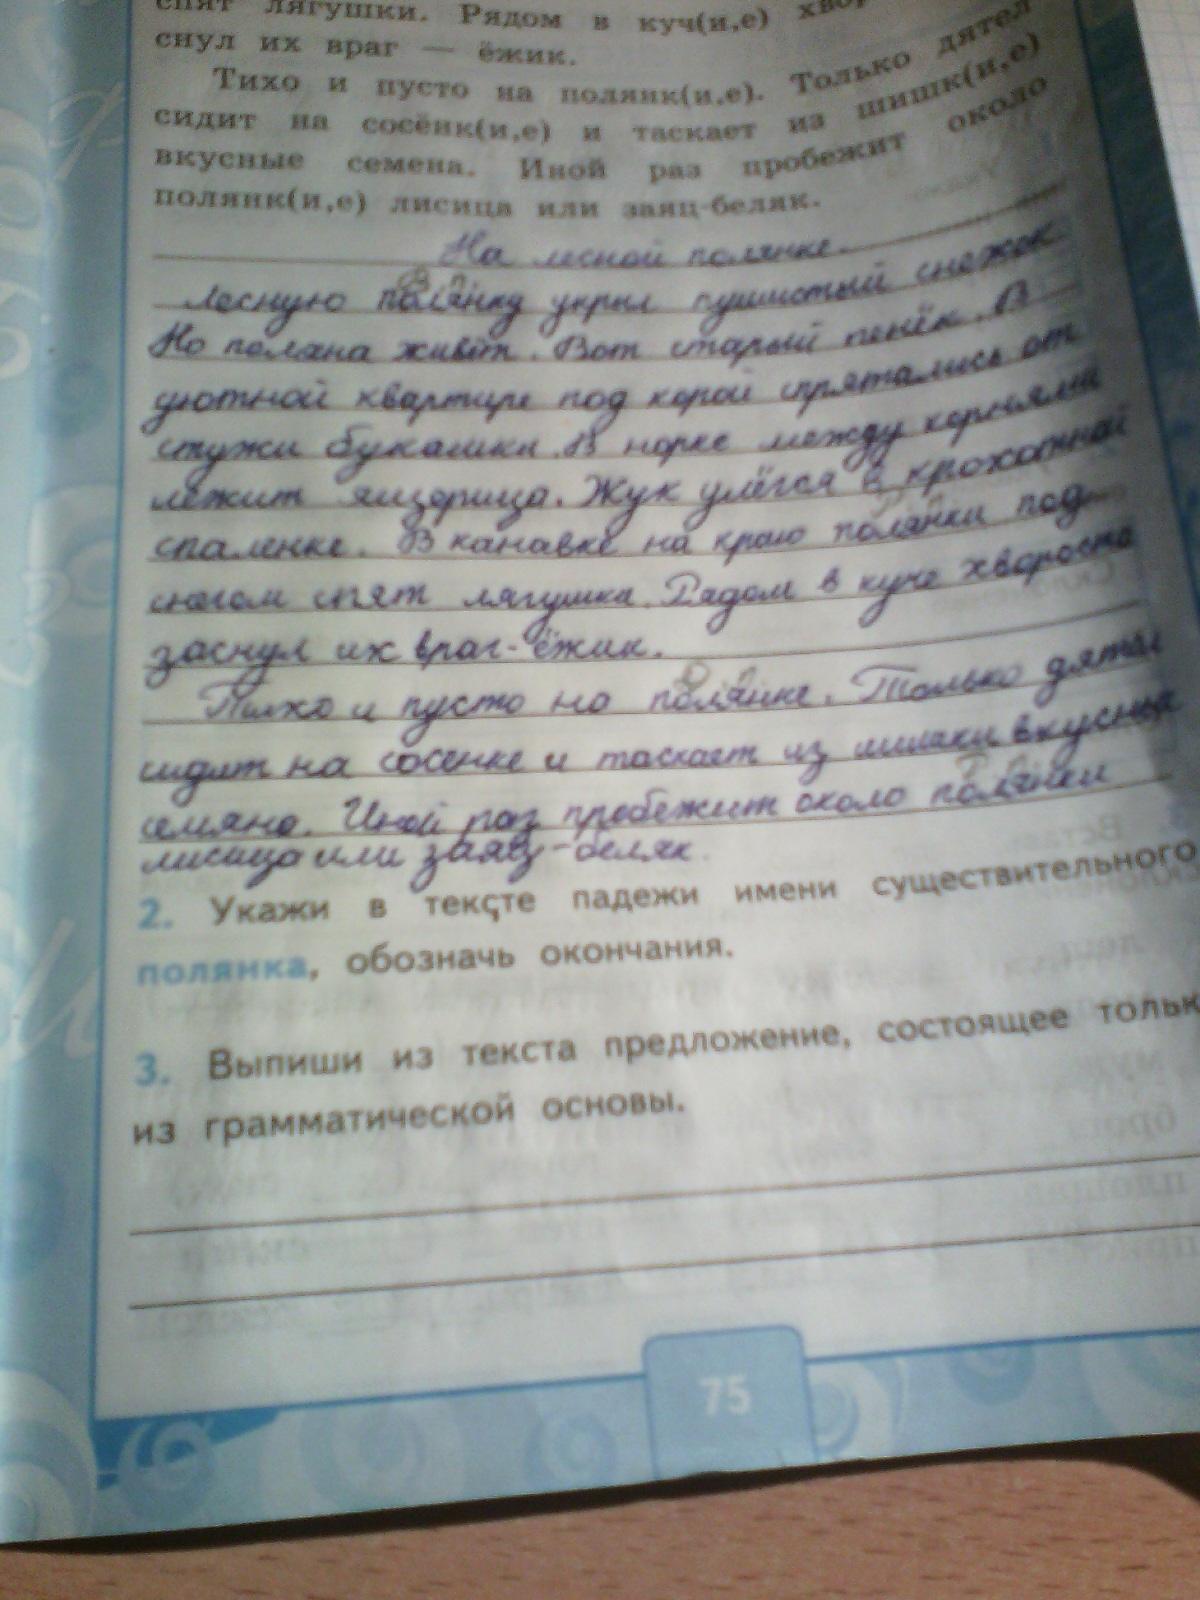 спят лягушки. Рядом в куч(и,е)
снул их враг — ёжик.
Тихо и пусто на полянк(и,е). Только дятел
сидит на сосёнк(и,е) и таскает из шишк(и,е)
вкусные семена. Иной раз пробежит около
полянк(и,е) лисица или заяц-беляк.
На лесной полянке.
Лесную полянку укрыл пушистый снежок
Но поляна живёт. Вот старый пенёк. В
уютной квартире под корой спрятались от
стужи букашки. В норке между корнями
лежит ящерица. Жук улёгся в крохотной
спаленке. В канавке на краю полянки под
снегом спят лягушки. Рядом в куче хвороста
заснул их враг-ёжик.
Тихо и пусто на полянке. Только дятел
сидит на сосенке и таскает из шишки вкусные
семяна. Иной раз пробежит около полянки
лисица или заяц-беляк.
2. Укажи в тексте падежи имени существительного
полянка, обозначь окончания.
3. Выпиши из текста предложение, состоящее тольк
из грамматической основы.
75